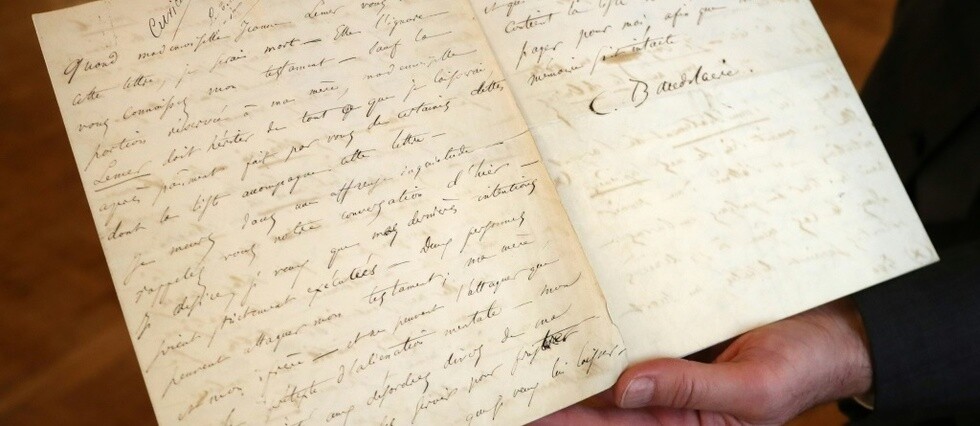 Quand mademoiselle Jeanne Lemer vous
cette lettre, je serai mort — Elle l'ignore
vous connaissez mon testament — sauf la
portion réservée à ma mère, mademoiselle
Lemer doit hériter de tout ce que je laisserai
après paiement fait par vous de certaines dettes
dont la liste accompagne cette lettre —
Je meurs dans une affreuse inquiétude —
rappelez vous notre conversation d'hier —
Je désire, je veux que mes dernières intentions
soient strictement exécutées — Deux personnes
peuvent attaquer mon testament; ma mère
et mon frère — et ne peuvent l'attaquer que
prétexte d'aliénation mentale — mon
aux désordres divers de ma
servir pour frustrer
que je veux lui laisser —
contient la liste
payer pour moi, afin que
mémoire soit intacte
C. Baudelaire.